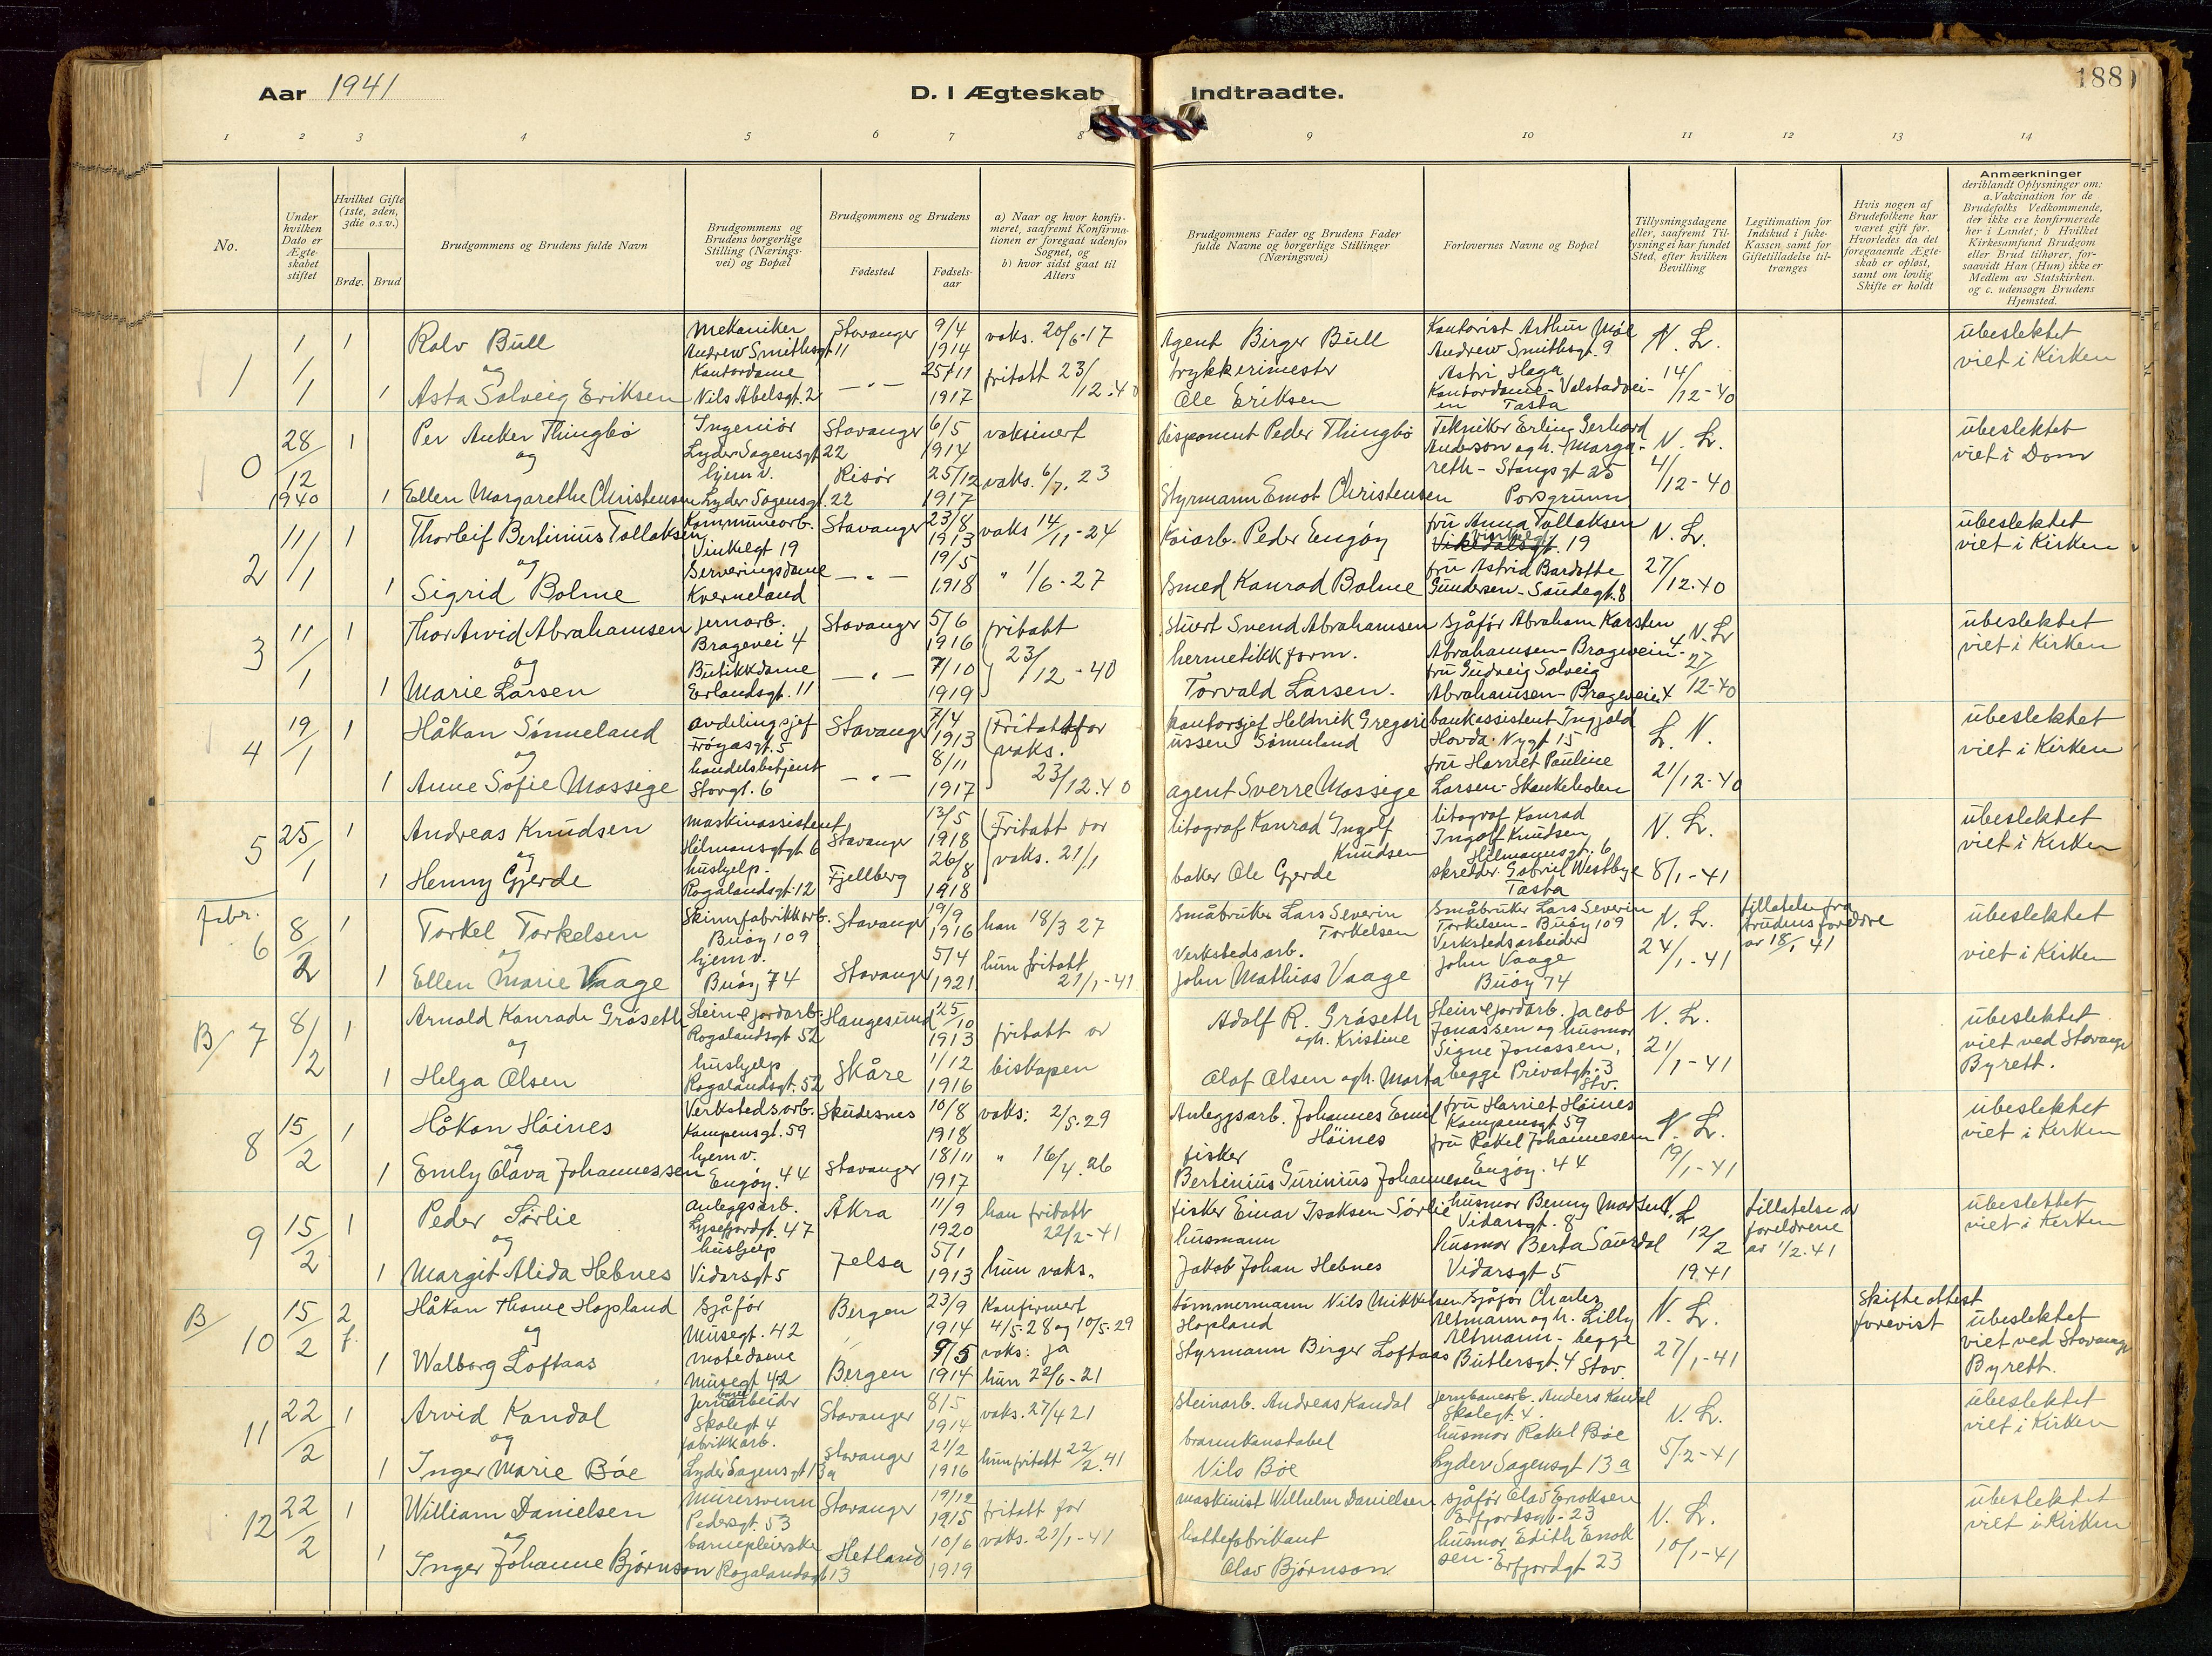 188
Aar 1941
D. I Ægteskab Indtraadte.
1 2 3 4 5 6 7 8 9 10 11 12 13 14
No.
Under hvilken Dato er Ægte-skabet stiftet
Hvilket Gifte (1ste, 2den, 3die o.s.v.)
Brdg. Brud
Brudgommens og Brudens fulde Navn
Brudgommens og Brudens borgerlige Stilling (Nærings-vei) og Bopæl
Brudgommens og Brudens
Fødested
Fødsels-aar
a) Naar og hvor konfir-meret, saafremt Konfirma-tionen er foregaat udenfor Sognet, og
b) hvor sidst gaat til Alters
Brudgommens Fader og Brudens Fader fulde Navne og borgerlige Stillinger (Næringsvei)
Forlovernes Navne og Bopæl
Tillysningsdagene eller, saafremt Til-lysning ei har fundet Sted, efter hvilken Bevilling
Legitimation for Indskud i Enke-Kassen samt for Giftetilladelse til-trænges
Hvis nogen af Brudefolkene har været gift før. Hvorledes da det foregaaende Ægte-skab er opløst, samt om lovlig Skifte er holdt
Anmærkninger
deriblandt Oplysninger om: a. Vakcination for de Brudefolks Vedkommende, der ikke ere konfirmerede her i Landet; b Hvilket Kirkesamfund Brudgom eller Brud tilhører, for-saavidt Han (Hun) ikke er Medlem av Statskirken. og c. udensogn Brudens Hjemsted.
1 1/1 1 Rolv Bull
og
1 Asta Solveig Eriksen
Mekaniker
Andrew Smithsgt 11
Kontordame
Nils Abelsgt. 2
Stavanger
— " —
9/4 1914
25/11 1917
vaks. 20/6-17
fritatt 23/12.40
Agent Birger Bull
trykkerimester
Ole Eriksen
Kontorist Arthur
Andrew Smithsgt. 9
Astri Haga
Kontordame - Valstadvei-
en Tasta
N. L.
14/12-40
ubeslektet
viet i Kirken
0 28/12 1940 1 Per Anker Thingbø
og
1 Ellen Margarethe Christensen
Ingeniør
Lyder Sagensgt 22
hjemv.
Lyder Sagensgt. 22
Stavanger
Risør
6/5 1914
25/12 1917
vaksinert
vaks. 6/7. 23
disponent Peder Thingbø
Styrmann Emot Christensen
Tekniker Erling Gerhard
Anderson og h. Marga-
reth - Stangsgt 25
Porsgrunn
N. L.
4/12-40
ubeslektet
viet i Dom
2 11/1 1 Thorleif Bertinius Tollaksen
og
1 Sigrid Bolme
Kommunearb.
Vinkelgt 19
Serveringsdame
Kverneland
Stavanger
— " —
23/8 1913
19/5 1918
vaks 14/11-24
" 1/6-27
Kaiarb. Peder Engøy
Smed Konrad Bolme
fru Anna Tollaksen
Vinkelgt. 19
fru Astrid Bardotte
Gundersen - Saudegt. 8
N. L.
27/12.40
ubeslektet
viet i Kirken
3 11/1 1 Thor Arvid Abrahamsen
og
1 Marie Larsen
Jernarb.
Bragevei 4
Butikkdame
Erlandsgt. 11
Stavanger
— " —
5/6 1916
7/10 1919
fritatt
23/12-40
Stuert Svend Abrahamsen
hermetikkform.
Torvald Larsen.
Sjåfør Abraham Karsten
Abrahamsen - Bragevein 4
fru Gudveig Solveig
Abrahamsen - Brageveien 4
N. L.
27/12-40
ubeslektet
viet i Kirken
4 19/1 1 Håkon Sømueland
og
1 Anne Sofie Mossige
avdelingsjef
Frøyasgt. 5
handelsbetjent
Storgt. 6
Stavanger
— " —
7/4 1913
8/11 1917
Fritatt for
vaks.
23/12.40
kontorsjef Heldnik Gregori
ussen Sømueland
agent Sverre Mossige
bankassistent Ingjald
Hovda. Nygt 15
fru Harriet Pauline
Larsen - Skankeholen
L. N.
21/12-40
ubeslektet
viet i Kirken
5 25/1 1 Andreas Knudsen
og
1 Henny Gjerde
Maskinassistent
Hilmansgtgt 6
hushjelp.
Rogalandsgt. 12
Stavanger
Fjellberg
13/5 1918
26/8 1918
Fritatt for
vaks. 21/1
litograf Konrad Ingolf
Knudsen
baker Ole Gjerde
litograf Konrad
Ingolf Knudsen
Hilmannsgt. 6
skredder Gabriel Westbye
Tasta
N. L.
8/1-41
ubeslektet
viet i Kirken
Febr.
6 8/2 1 Torkel Torkelsen
og
1 Ellen Marie Vaage
Skinnfabrikkarb.
Buøy 109
hjemv.
Buøy 74
Stavanger
Stavanger
19/9 1916
5/4 1921
han 18/3 27
hun fritatt
21/1-41
Småbruker Lars Severin
Torkelsen
Verkstedsarb.
John Mathias Vaage
Småbruker Lars Severin
Torkelsen - Buøy 109
Verkstedsarbeider
John Vaage
Buøy 74
N. L.
24/1-41
tillatelse fra
brudens foreldre
av 18/1 41
ubeslektet
viet i Kirken
B/ 7 8/2 1 Arnold Konrad Gråseth
og
1 Helga Olsen
Stein & jordarb.
Rogalandsgt 52
hushjelp
Rogalandsgt. 52
Haugesund
Skåre
25/10 1913
1/12 1916
fritatt av
biskopen
Adolf R. Gråseth
og h. Kristine
Olaf Olsen og h. Marta
Stein & jordarb. Jacob
Jonassen og husmor
Signe Jonassen,
begge Privatgt. 3
Stv.
N. L.
21/1-41
ubeslektet
viet ved Stavanger
Byrett.
8 15/2 1 Håkon Höines
og
1 Emly Olava Johannessen
Verkstedsarb.
Kampensgt. 59
hjemv.
Engøy. 44
Skudesnes
Stavanger
10/8 1918
18/11 1917
vaks: 2/5.29
" 16/4.26
Anleggsarb. Johannes Emil
Höines
fisker
Bertinius Gurinius Johannesen
fru Harriet Höines
Kampensgt 59
fru Rakel Johannesen
Engøy. 44
N. L.
19/1-41
ubeslektet
viet i Kirken
9 15/2 1 Peder Sørlie
og
1 Margit Alida Hebnes
anleggsarb.
Lysefjordgt. 47
hushjelp
Vidarsgt 5
Åkra
Jelsa
11/9 1920
5/1 1913
han fritatt
22/2-41
hun vaks.
fisker Einar Isaksen Sørlie
husmann
Jakob Johan Hebnes
husmor Benny Madsen
Vidarsgt. 8
husmor Berta Saurdal
Vidarsgt 5
N. L.
12/2 1941
tillatelse av
foreldrene
av 1/2.41
ubeslektet
viet i Kirken
B/ 10 15/2 2 f. Håkon Thome Hopland
og
1 Walborg Loftaas
Sjåfør
Musegt. 42
motedame
Musegt 42
Bergen
Bergen
23/9 1914
9/5 1914
Konfirmert
4/5-28 og 10/5-29
vaks: ja
hun 22/6-21
tømmermann Nils Mikkelsen
Hopland
Styrmann Birger Loftaas
Sjåfør Charles
Altmann og h. Lilly
Altmann - begge
Butlersgt. 4 Stav.
N. L.
27/1-41
Skifte attest
forevist
ubeslektet
viet ved Stavanger
Byrett.
11 22/2 1 Arvid Kandal
og
1 Inger Marie Bøe
Jernbanearbeider
Skolegt 4
fabrikkarb.
Lyder Sagensgt 13a
Stavanger
Stavanger
8/5 1914
21/2 1916
vaks. 27/4 21
hun fritatt 22/2.41
Steinarb. Andreas Kandal
brannkonstabel
Nils Bøe
Jernbanearb. Anders Kandal
Skolegt. 4.
husmor Rakel Bøe
Lyder Sagensgt 13a
N. L.
5/2-41
ubeslektet
viet i Kirken
12 22/2 1 William Danielsen
og
1 Inger Johanne Bjørnson
Murersvenn
Pedersgt. 53
barnepleierske
Rogalandsgt 13
Stavanger
Hetland
19/12 1915
10/6 1919
fritatt for
vaks. 21/1-41
maskinist Wilhelm Danielsen
hattefabrikant
Olav Bjørnson
sjåfør Olav Enoksen
Erfjordsgt. 23
husmor Edith Enok
sen - Erfjordgt 23
N. L.
10/1-41
ubeslektet
viet i Kirken